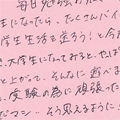 毎日勉強
生になったら、たくさんバイ
学生生活を送ろう!と今
、大学生になってみると、やっぱ
とかあって、そんなに遊べま
、受験の為に頑張った
マシ…そう思えるように!